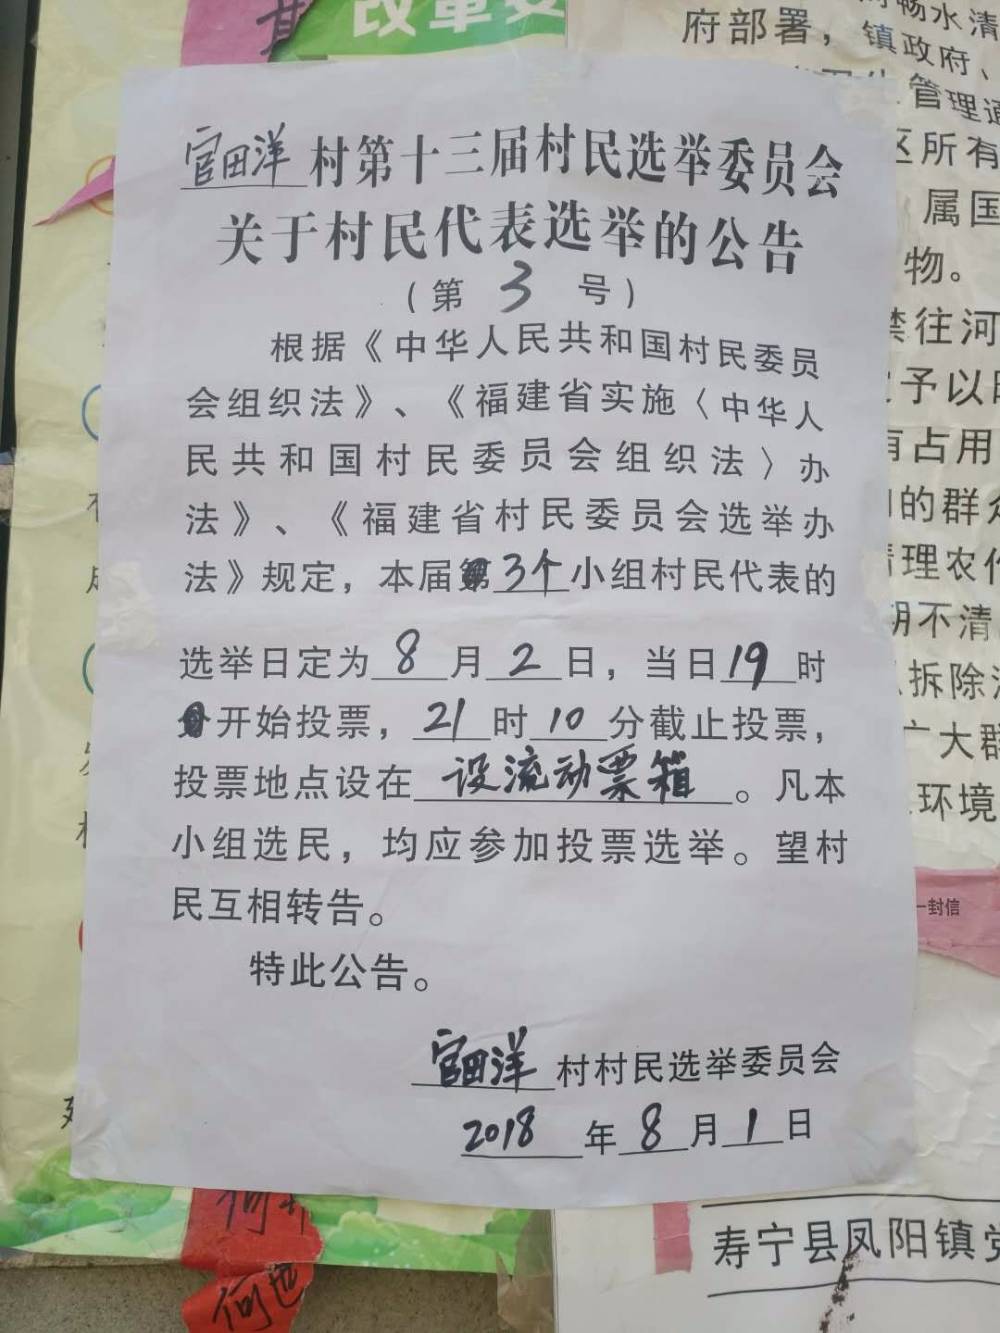 改革
府部署，镇政府、
畅水清
管理
区所有
属国
物。
禁往河
予以
有占用
的群众
清理农作
期不清
拆除
广大群
环境
一封信
官田洋村第十三届村民选举委员会
关于村民代表选举的公告
（第 3 号）
根据《中华人民共和国村民委员
会组织法》、《福建省实施〈中华人
民共和国村民委员会组织法〉办
法》、《福建省村民委员会选举办
法》规定，本届3个小组村民代表的
选举日定为8月2日，当日19时
开始投票，21时10分截止投票，
投票地点设在设流动票箱。凡本
小组选民，均应参加投票选举。望村
民互相转告。
特此公告。
官田洋村村民选举委员会
2018年8月1日
寿宁县凤阳镇党
何
何